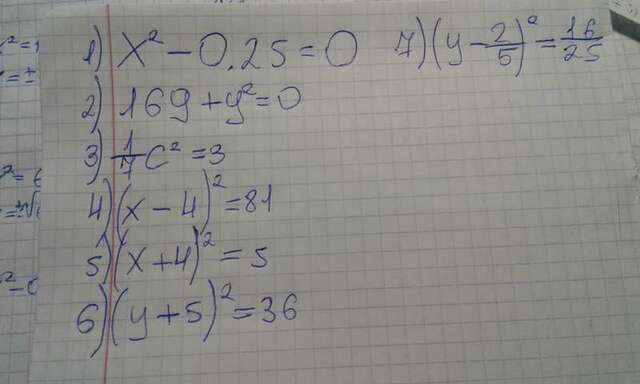 1) x² - 0.25 = 0
2) 169 + y² = 0
3) 1/7 c² = 3
4) (x - 4)² = 81
5) (x + 4)² = 5
6) (y + 5)² = 36
7) (y - 2/5)² = 16/25